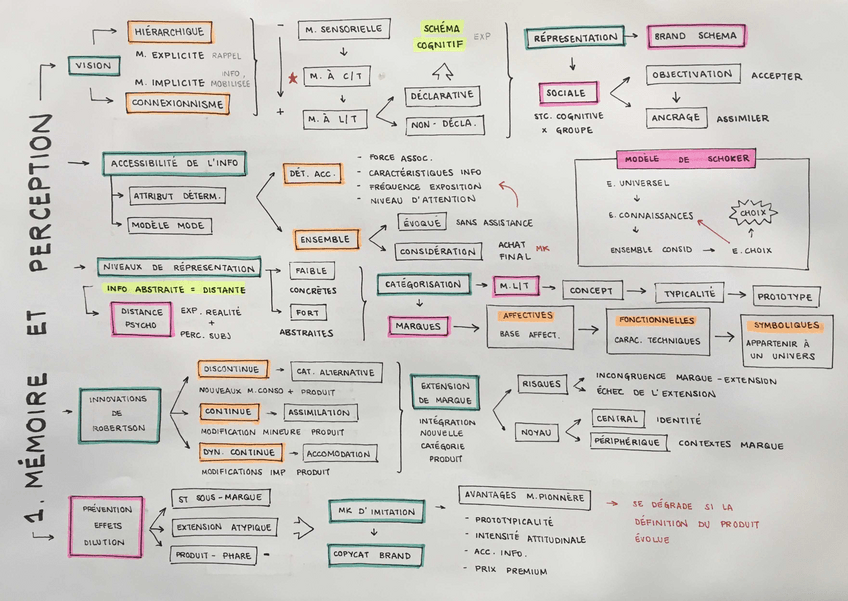 1. MÉMOIRE ET PERCEPTION
VISION
HIÉRARCHIQUE
M. EXPLICITE RAPPEL
M. IMPLICITE INFO MOBILISÉE
CONNEXIONNISME
-
+
M. SENSORIELLE
M. À C/T
M. À L/T
SCHÉMA
COGNITIF
EXP
DÉCLARATIVE
NON-DÉCLA.
RÉPRESENTATION
BRAND SCHEMA
SOCIALE
STC. COGNITIVE
X GROUPE
OBJECTIVATION ACCEPTER
ANCRAGE ASSIMILER
ACCESSIBILITÉ DE L'INFO
ATTRIBUT DÉTERM.
MODÈLE MODE
DÉT. ACC.
- FORCE ASSOC.
- CARACTÉRISTIQUES INFO
- FRÉQUENCE EXPOSITION
- NIVEAU D'ATTENTION
ENSEMBLE
ÉVOQUE SANS ASSISTANCE
CONSIDÉRATION ACHAT FINAL MK
MODELE DE SCHOKER
E. UNIVERSEL
E. CONNAISSANCES
ENSEMBLE CONSID
E. CHOIX
CHOIX
NIVEAUX DE RÉPRESENTATION
INFO ABSTRAITE = DISTANTE
DISTANCE
PSYCHO
EXP. REALITÉ
+
PERC. SUBJ
FAIBLE
CONCRÈTES
FORT
ABSTRAITES
CATÉGORISATION
M. L/T
CONCEPT
TYPICALITÉ
PROTOTYPE
MARQUES
AFFECTIVES
BASE AFFECT.
FONCTIONNELLES
CARAC. TECHNIQUES
SYMBOLIQUES
APPARTENIR À
UN UNIVERS
INNOVATIONS
DE
ROBERTSON
DISCONTINUE
CAT. ALTERNATIVE
NOUVEAUX M. CONSO + PRODUIT
CONTINUE
ASSIMILATION
MODIFICATION MINEURE PRODUIT
DYN. CONTINUE
ACCOMODATION
MODIFICATIONS IMP PRODUIT
EXTENSION
DE MARQUE
INTÉGRATION
NOUVELLE
CATÉGORIE
PRODUIT
RISQUES
INCONGRUENCE MARQUE-EXTENSION
ÉCHEC DE L'EXTENSION
NOYAU
CENTRAL IDENTITÉ
PÉRIPHÉRIQUE CONTEXTES MARQUE
PRÉVENTION
EFFETS
DILUTION
ST SOUS-MARQUE
EXTENSION ATYPIQUE
PRODUIT-PHARE -
MK D'IMITATION
COPYCAT BRAND
AVANTAGES M. PIONNÈRE
- PROTOTYPICALITÉ
- INTENSITÉ ATTITUDINALE
- ACC. INFO.
- PRIX PREMIUM
SE DÉGRADE SI LA
DÉFINITION DU PRODUIT
ÉVOLUE